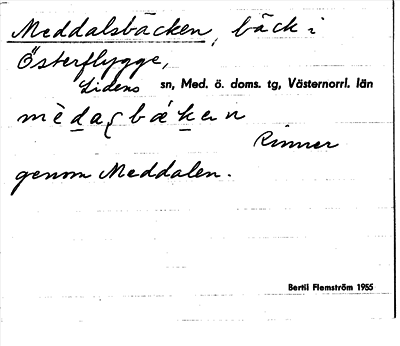 Meddalsbäcken, bäck i
Österflygge,
Lidens sn, Med. ö. doms. tg, Västernorrl. län
Rinner
genom Meddalen.
Bertil Flemström 1955